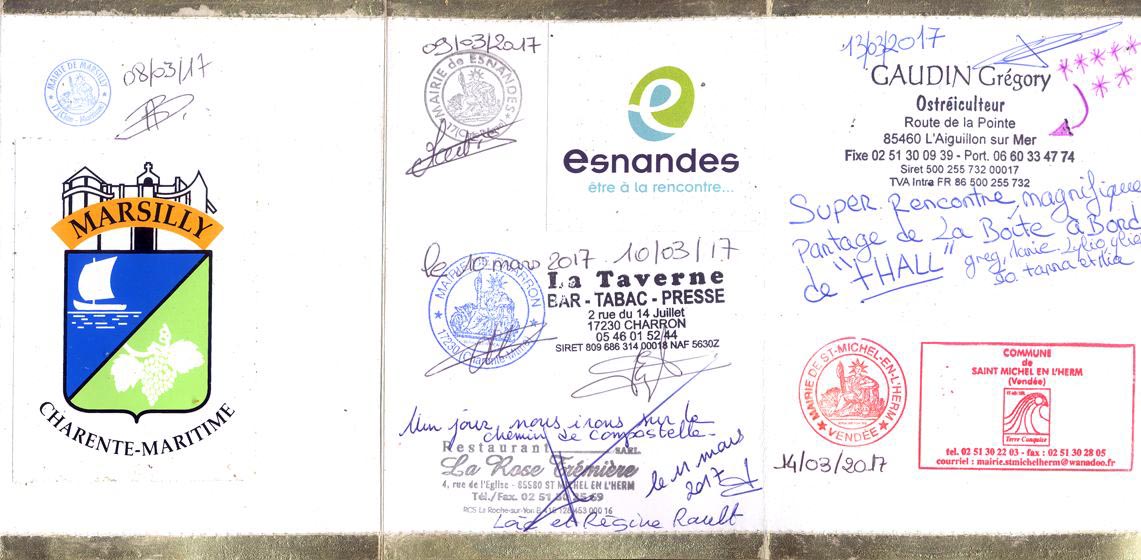 MAIRIE DE MARSILLY
08/03/17
MARSILLY
CHARENTE-MARITIME
09/03/2017
MAIRIE de ESNANDES
esnandes
être à la rencontre...
le 10 mars 2017
10/03/17
MAIRIE DE CHARRON
La Taverne
BAR - TABAC - PRESSE
2 rue du 14 Juillet
17230 CHARRON
05 46 01 52 44
SIRET 809 686 314 00018 NAF 5630Z
Un jour nous irons sur le
chemin de compostelle.
Restaurant SARL
La Rose Trémière
4, rue de l'Eglise - 85580 ST MICHEL EN L'HERM
Tél./Fax. 02 51
le 11 mars
2017
Loïc et Régine Rault
13/03/2017
GAUDIN Grégory
Ostréiculteur
Route de la Pointe
85460 L'Aiguillon sur Mer
Fixe 02 51 30 09 39 - Port. 06 60 33 47 74
Siret 500 255 732 00017
TVA Intra FR 86 500 255 732
Super Rencontre, magnifique
Partage de La Boite à Bord
de "THALL"
greg, Marie
MAIRIE DE ST-MICHEL-EN-L'HERM
VENDÉE
14/03/2017
COMMUNE
de
SAINT MICHEL EN L'HERM
(Vendée)
Terre Conquise
tel. 02 51 30 22 03 - fax : 02 51 30 28 05
courriel : mairie.stmichelherm@wanadoo.fr